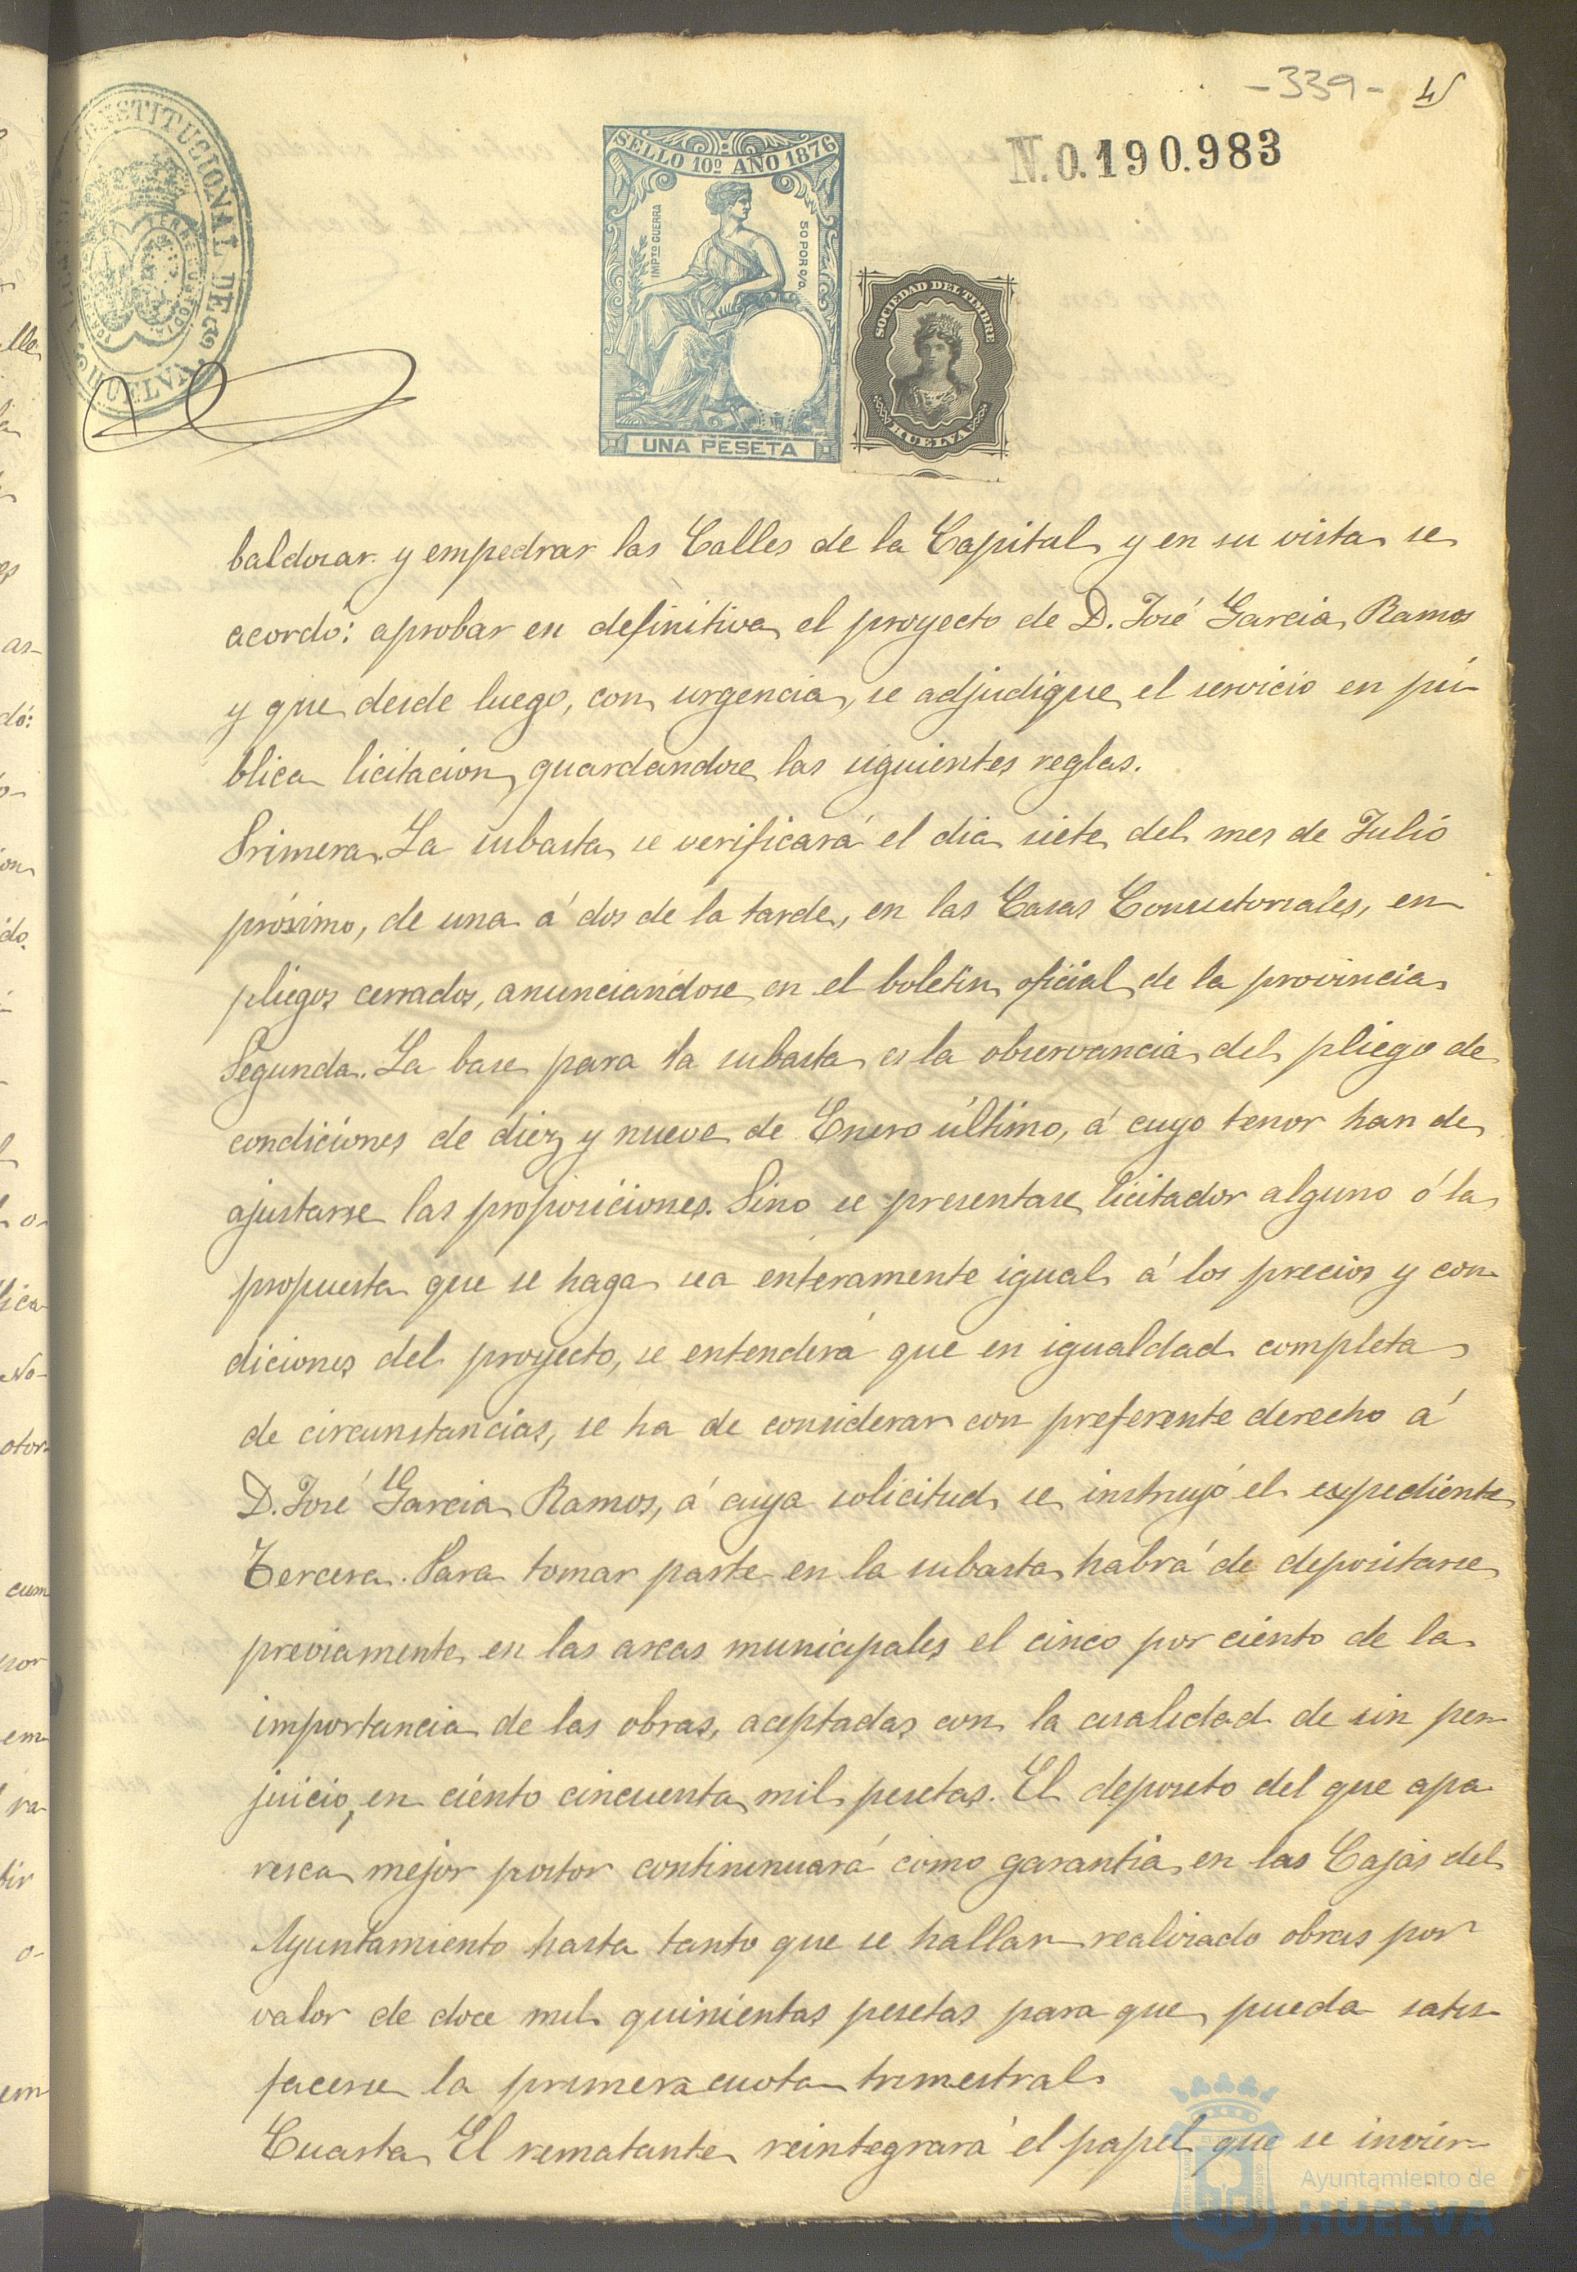 -339-
N. 0.190.983
CONSTITUCIONAL DE
HUELVA
SELLO 10º AÑO 1876
IMPTO GUERRA
50 POR 0/0.
UNA PESETA
SOCIEDAD DEL TIMBRE
HUELVA
baldosar y empedrar las Calles de la Capital y en su vista se
acordó: aprobar en definitiva el proyecto de D. José Garcia Ramos
y que desde luego, con urgencia, se adjudique el servicio en pú-
blica licitacion, guardandose las siguientes reglas.
Primera. La subasta se verificará el dia siete del mes de Julio
próximo, de una á dos de la tarde, en las Casas Consistoriales, en
pliegos cerrados, anunciándose en el boletin oficial de la provincia
Segunda. La base para la subasta es la observancia del pliego de
condiciones de diez y nueve de Enero último, á cuyo tenor han de
ajustarse las proposiciones. Sino se presentase licitador alguno ó la
propuesta que se haga sea enteramente igual á los precios y con-
diciones del proyecto, se entenderá que en igualdad completa
de circunstancias, se ha de considerar con preferente derecho á
D. José Garcia Ramos, á cuya solicitud se instruyó el expediente
Tercera. Para tomar parte en la subasta habrá de depositarse
previamente en las arcas municipales el cinco por ciento de la
importancia de las obras, aceptadas con la cualidad de sin per-
juicio, en ciento cincuenta mil pesetas. El deposito del que apa-
resca mejor postor continenuará como garantia en las Cajas del
Ayuntamiento hasta tanto que se hallan realizado obras por
valor de doce mil quinientas pesetas para que pueda satis-
facerse la primera cuota trimestral.
Cuarta El rematante reintegrará el papel que se invier-
Ayuntamiento de
HUELVA